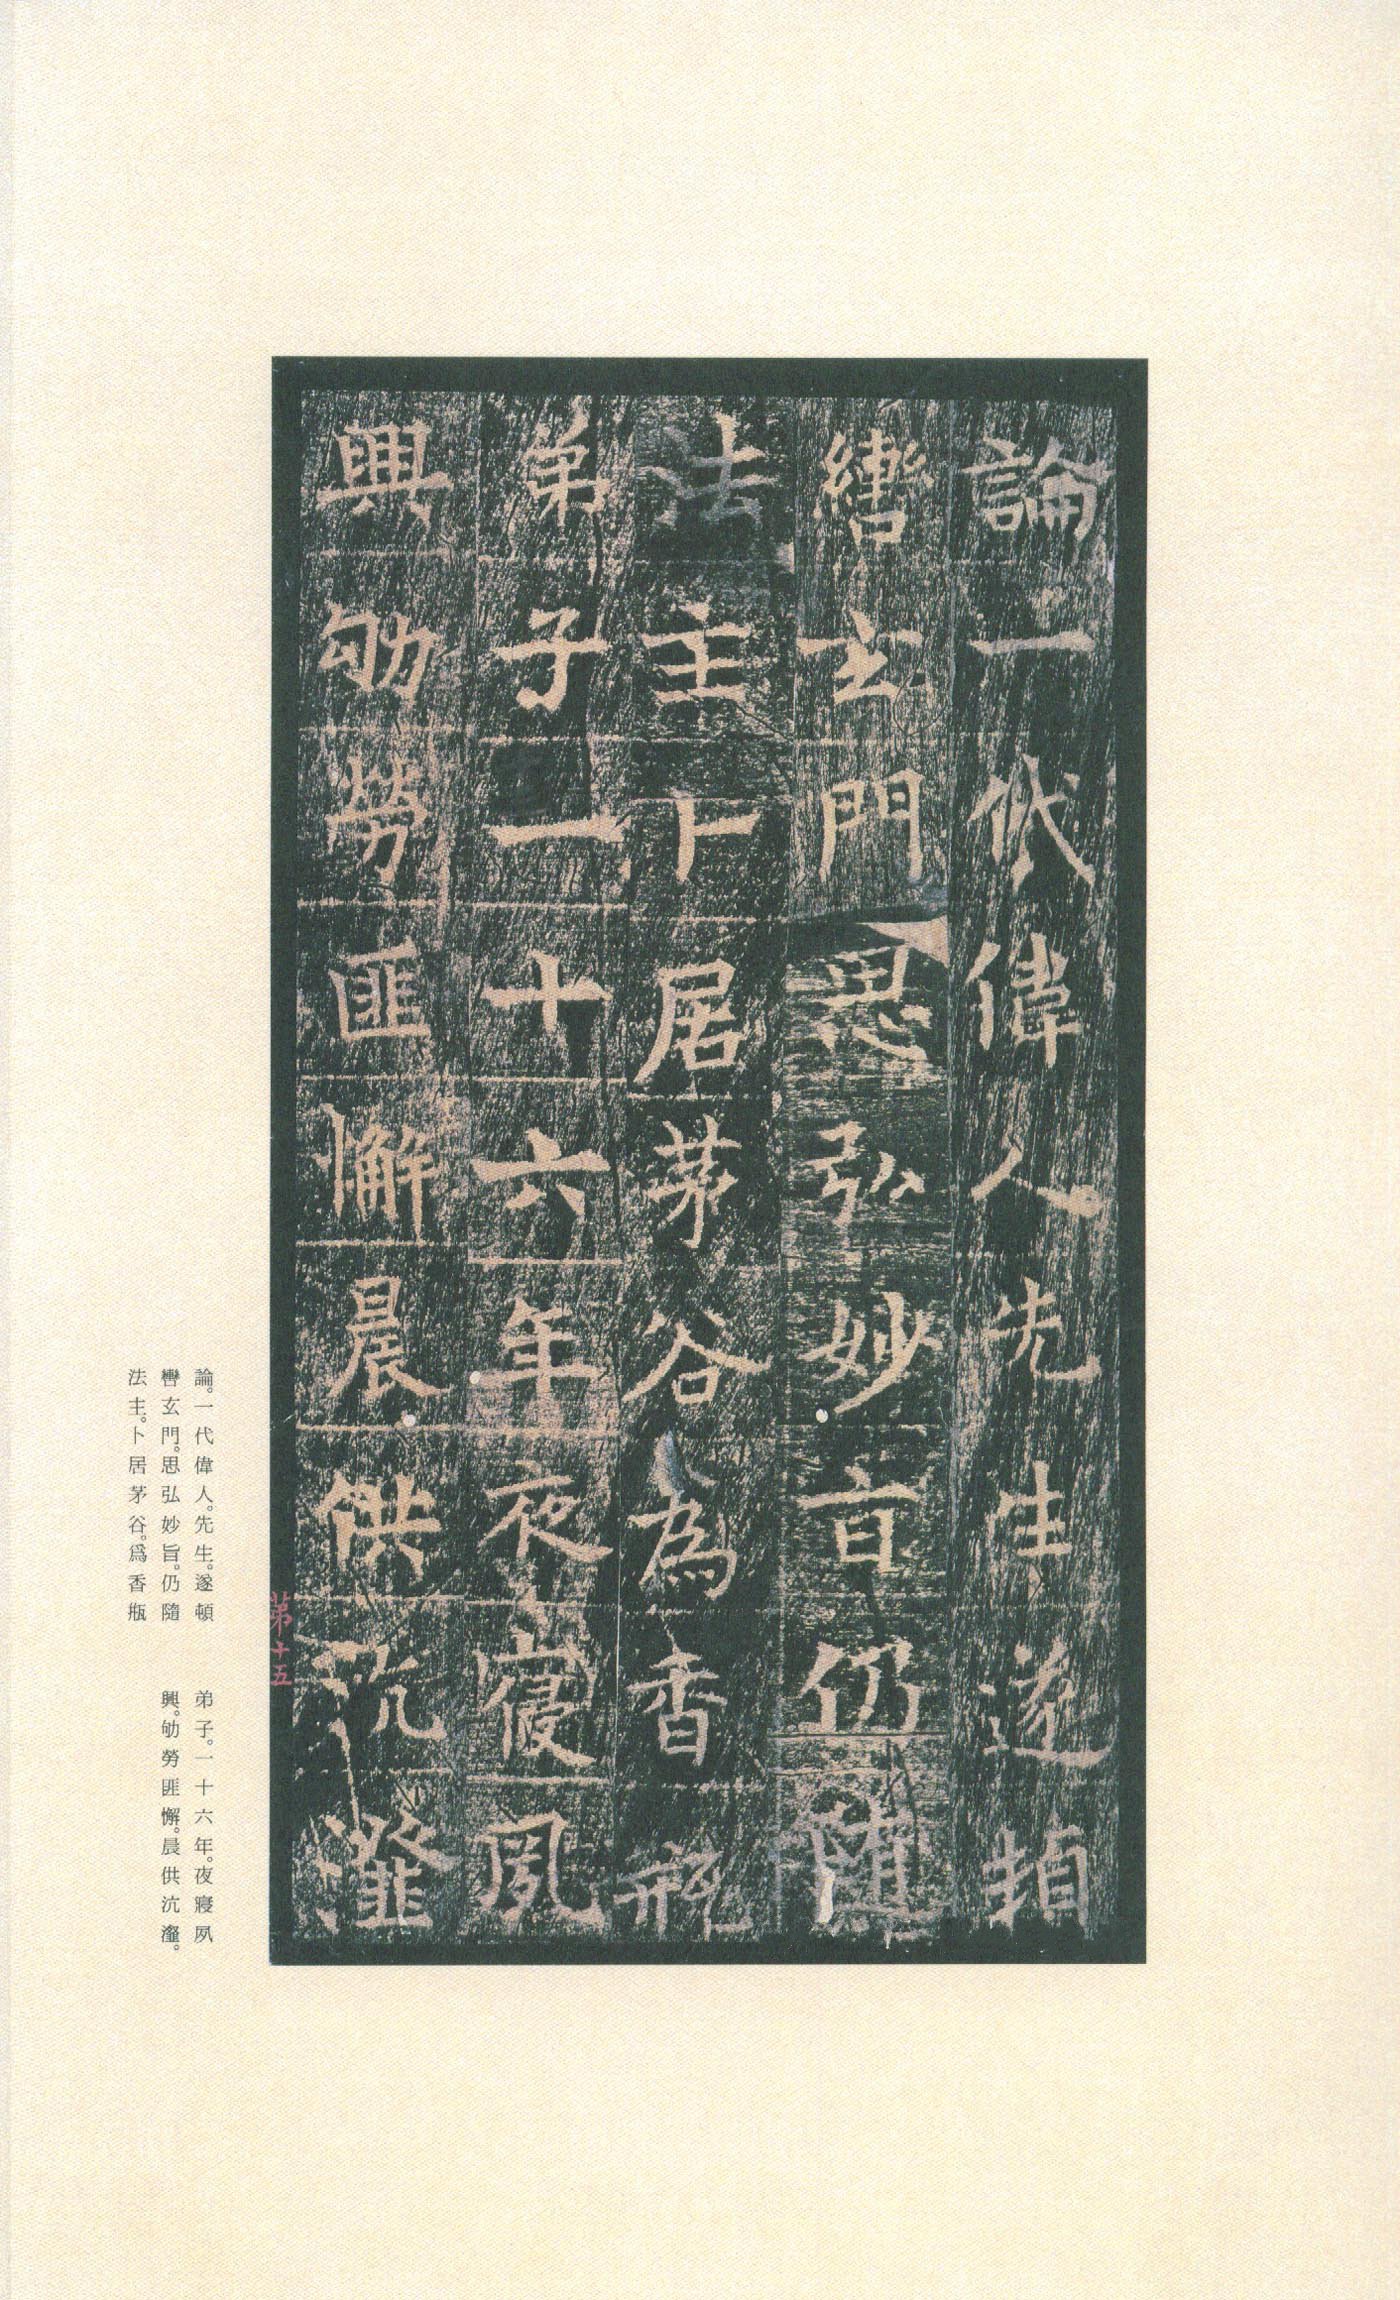 論一代偉人先生遂頓
轡玄門思弘妙旨仍隨
法主卜居茅谷為香瓶
弟子一十六年夜寑夙
興劬勞匪懈晨供沆瀣
第十五
論。一代偉人。先生。遂頓
轡玄門。思弘妙旨。仍隨
法主。卜居茅谷。爲香瓶
弟子。一十六年。夜寢夙
興。劬勞匪懈。晨供沆瀣。